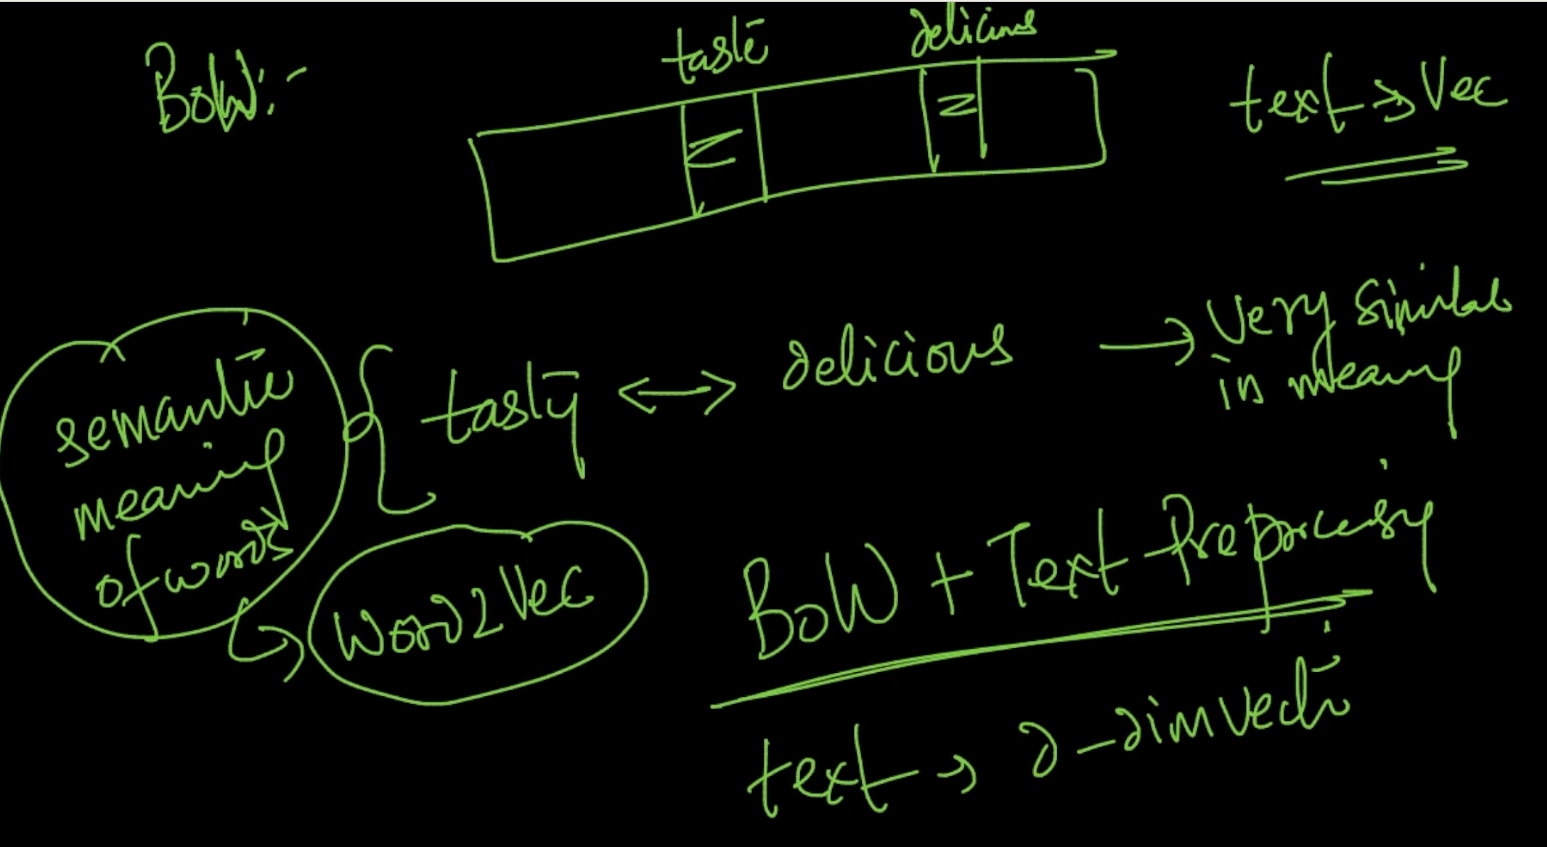 BoW:-
taste delicious
text → Vec
semantic
meaning
of words
tasty ↔ delicious → Very similar
in meaning
Word2Vec
BoW + Text-Preprocessing
text → d-dim vector